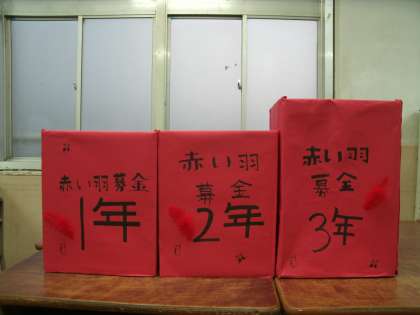 赤い羽募金
1年
赤い羽
募金
2年
赤い羽
募金
3年